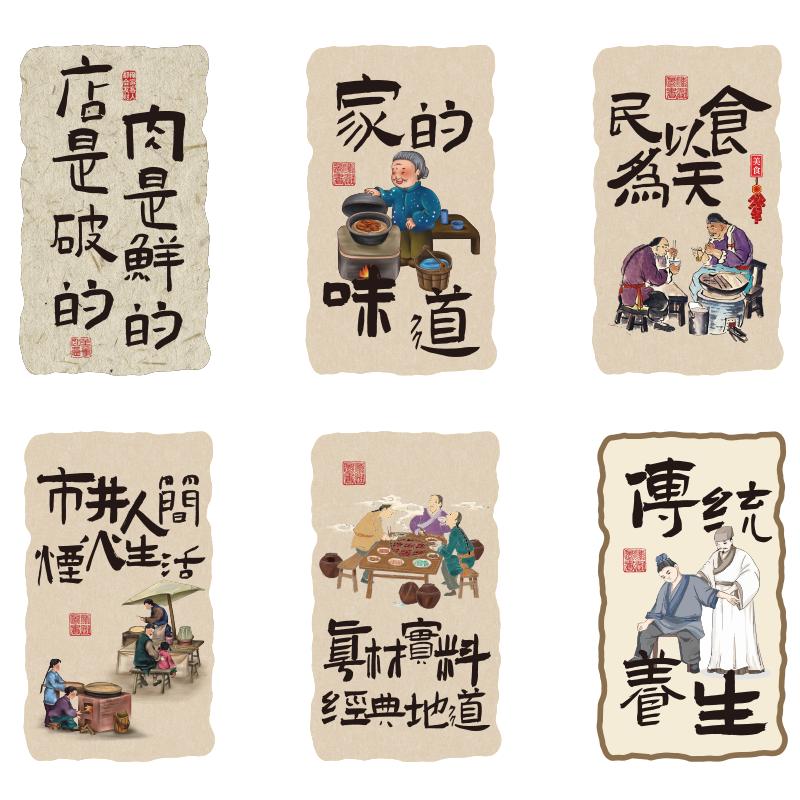 店是破的
肉是鮮的
家的
味道
民以食
為天
美食
市井人間
煙火生活
真材實料
經典地道
傳統
養生